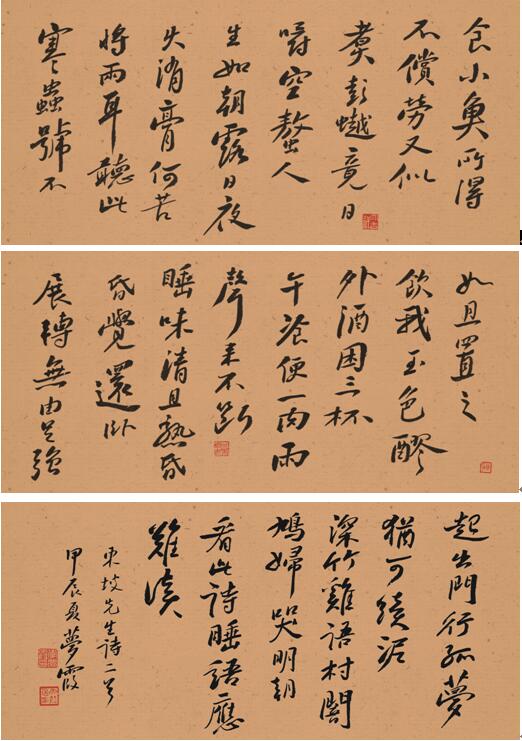 食小魚所得
不償勞又似
煮彭竟日
嚼空螯人
生如朝露日夜
火消膏何苦
將兩耳聽此
寒蟲號不
如且置之
飲我玉色醪
卯酒困三杯
午飡便一肉雨
聲来不斷
睡味清且熟昏
昏覺還卧
展轉無由足強
起出門行孤夢
猶可續泥
深竹雞語村闇
鳩婦哭明朝
看此詩睡語應
難讀
東坡先生詩二首
甲辰夏夢霞